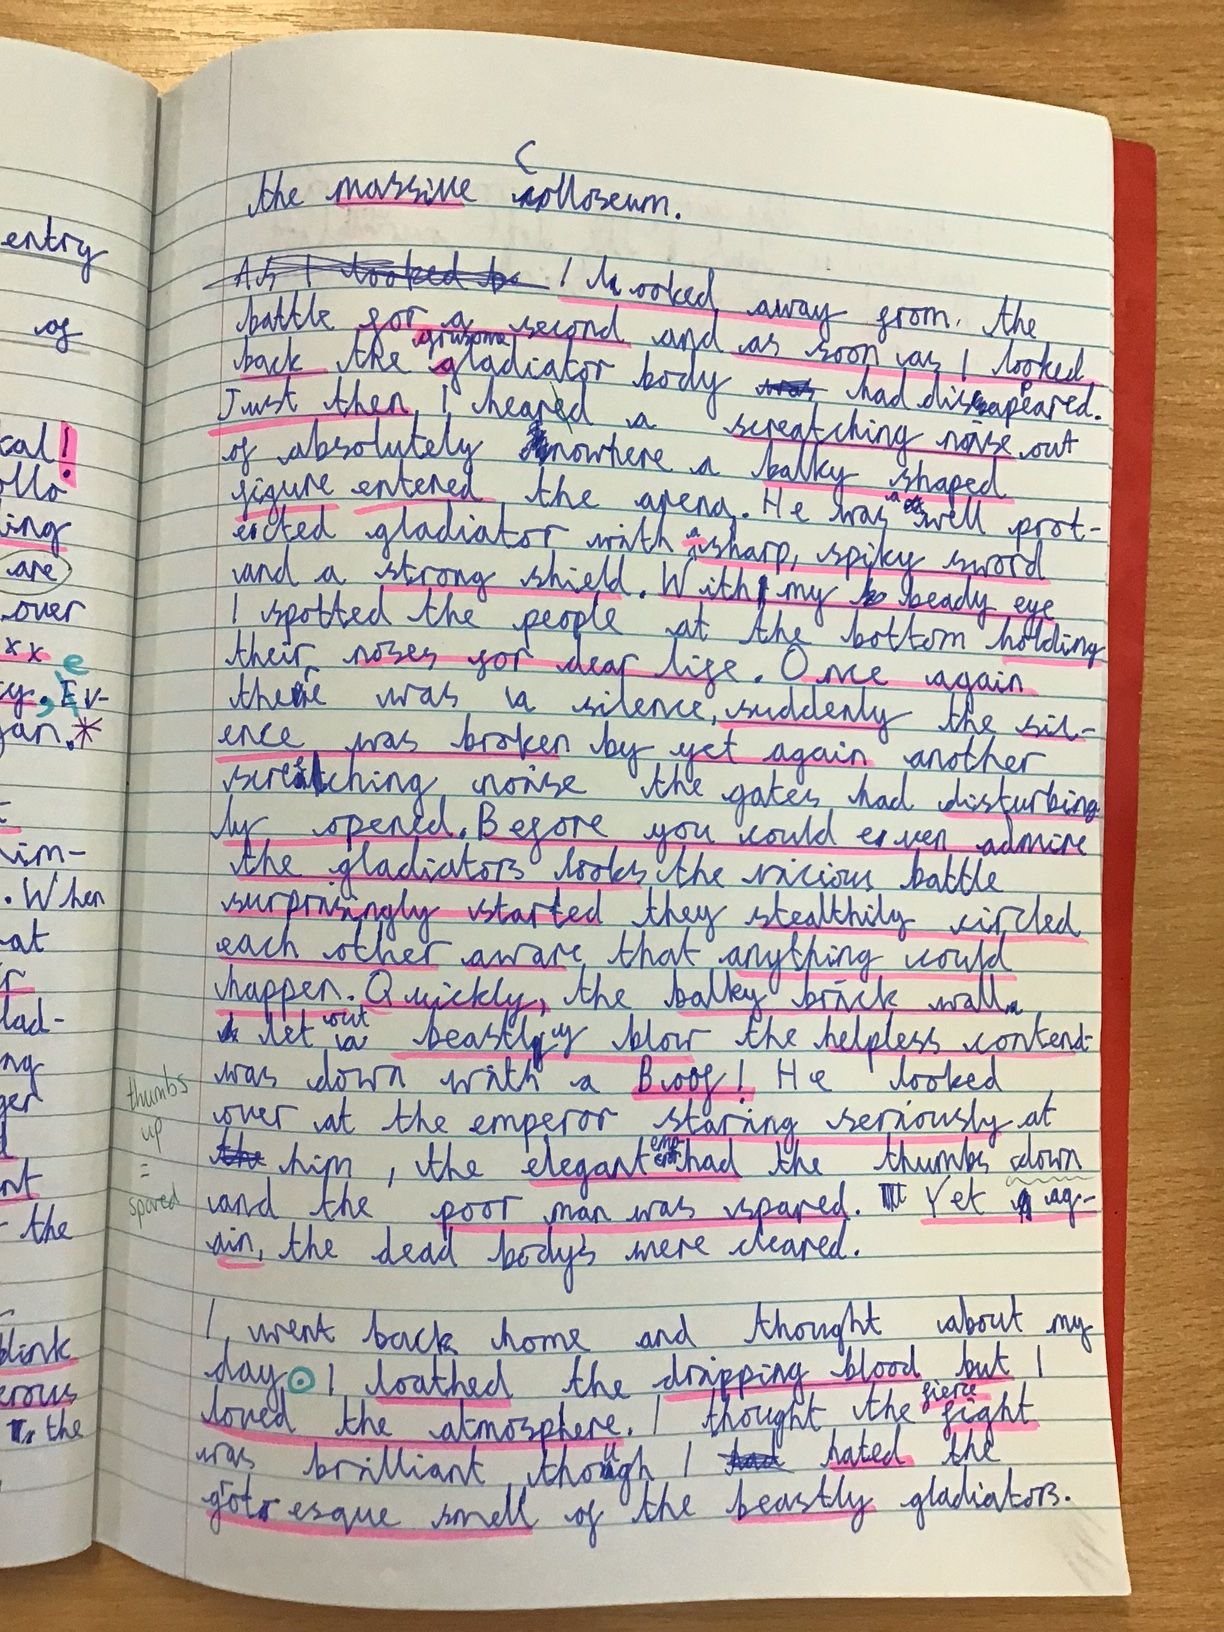 entry
of
cal!
ollo
ing
are
over
x x e
y, Ev-
gan.*
him-
. When
at
r
lad-
ng
ger
nt
- the
blink
erous
the
C
the massive colloseum.
As I looked b I looked away from. the
battle for a second and as soon as I looked
gruesome
back the gladiator body was had disapeared.
Just then, I heared a screatching noise out
of absolutely nowhere a balky shaped
figure entered the arena. He was a well prot-
ected gladiator with a sharp, spiky sword
and a strong shield. With my beady eye
I spotted the people at the bottom holding
their noses for dear life. Once again
there was a silence, suddenly the sil-
ence was broken by yet again another
screatching noise the gates had disturbing
ly opened. Before you could even admire
the gladiators looks the vicious battle
surprisingly started they stealthily circled
each other aware that anything could
happen. Quickly, the balky brick wall
let out a beastly blow the helpless contend-
was down with a Boof! He looked
over at the emperor staring seriously at
the him, the elegant emperor had the thumbs down
and the poor man was spared. Yet ag-
ain, the dead bodys were cleared.
thumbs
up
=
spared
I went back home and thought about my
day. I loathed the dripping blood but I
loved the atmosphere. I thought the fierce fight
was brilliant though I had hated the
gotresque smell of the beastly gladiators.